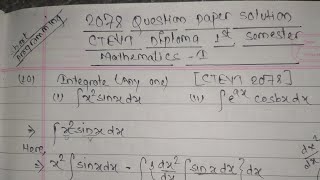 2078 Question paper solution
CTEVT Diploma 1st semester
Mathematics - 1
programming
Q01 Integrate (Any one) [CTEVT 2078]
(i) ∫x² sinx dx (ii) ∫e^ax cosbx dx
⇒ ∫x² sinx dx
Here,
⇒ x² ∫sinx dx - ∫{ dx²/dx ∫sinx dx } dx
dx²/dx